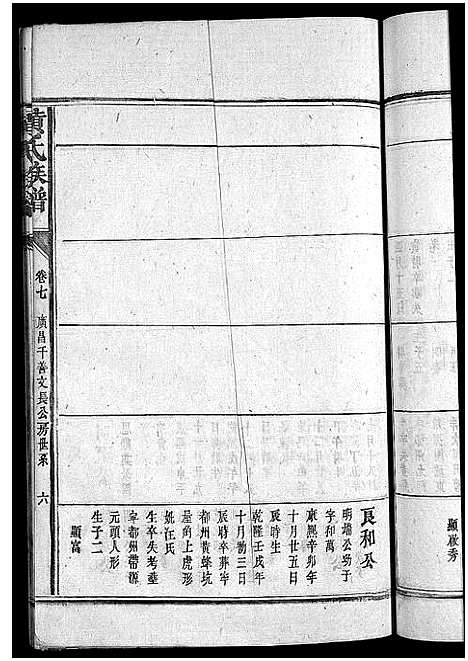 黄氏族譜
卷七
廣昌千善文長公房世系
六
良和公
明瑞公幼子
字和萬
康熙辛卯年
十月廿五日
辰時生
乾隆壬戌年
十月初三日
辰時辛葬寧
都州黄蜂坑
屋角上虎形
妣汪氏
生卒失考塟
寧都州帶源
元頭人形
生子二
顯富
顯啟秀